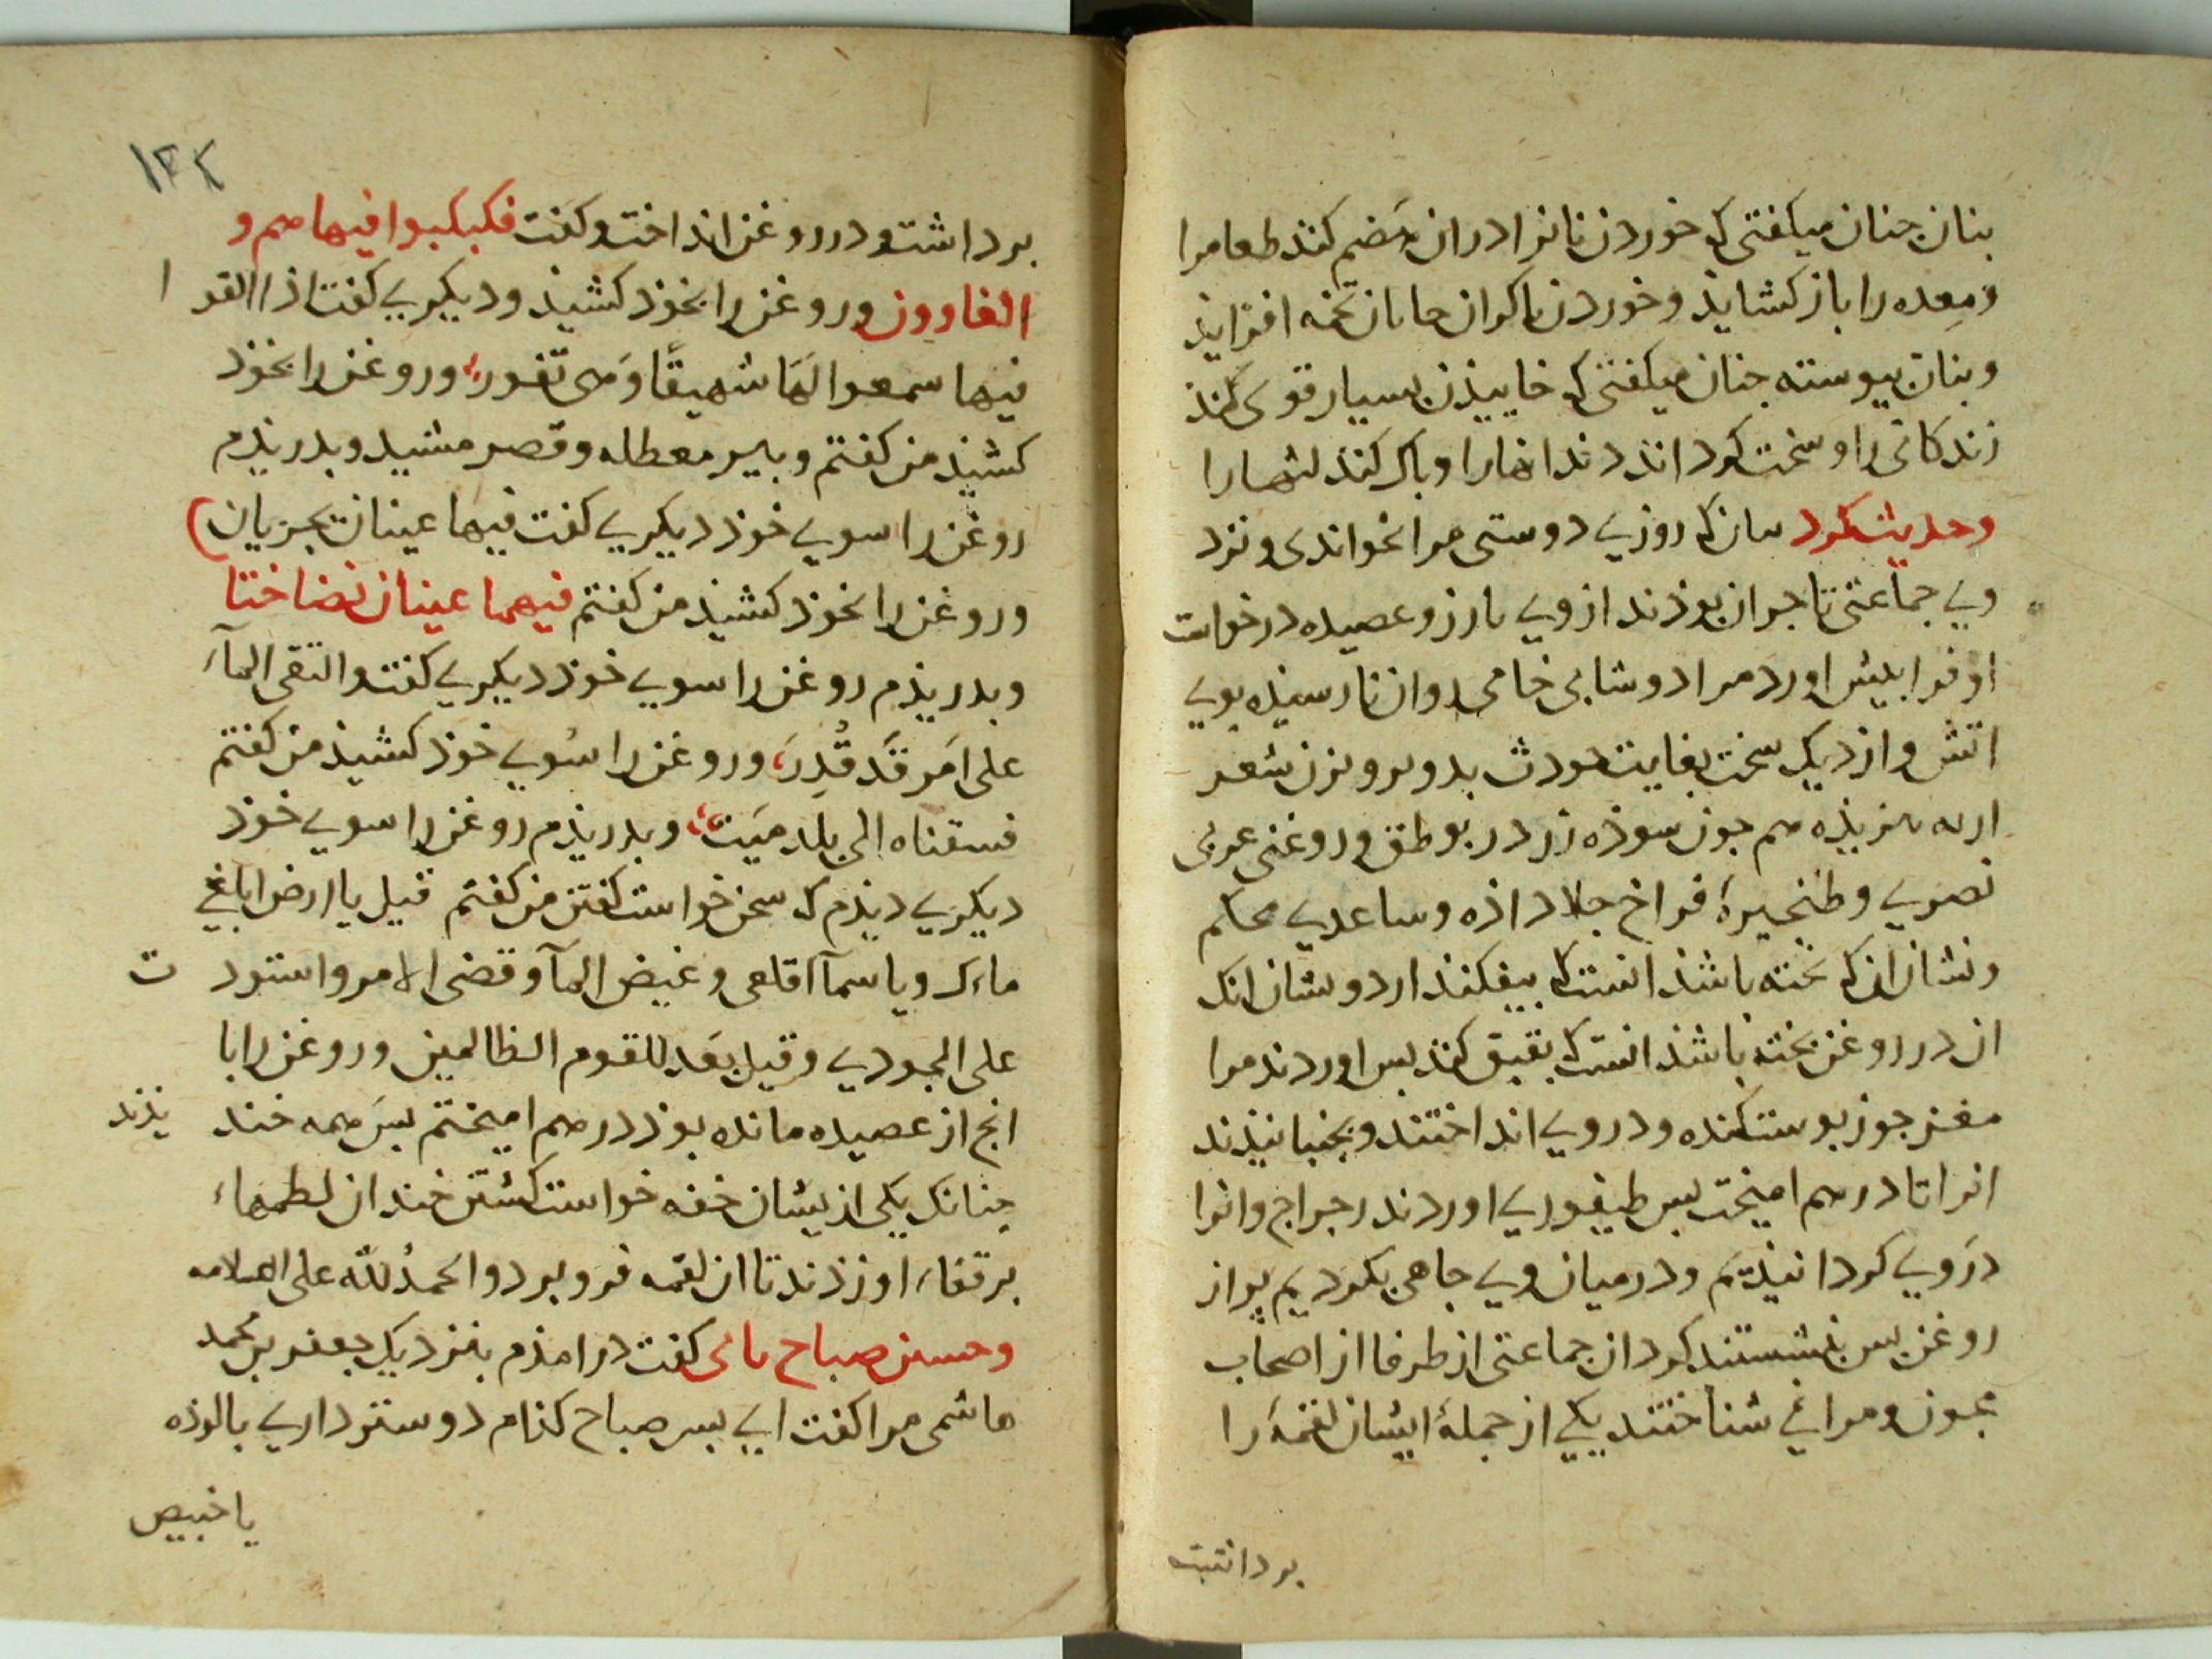 بنان جنان میکفتی که خوردن نانرا دران هضم کند طعامرا
ومعده را باز کشاید وخوردن با کران جانان تخمه افزاید
وبنان پیوسته جنان میکفتی که خاییذن بسیار قوی کند
زندکانی را وسخت کرداند دندانهارا وپاک کند لثهارا
وحدیث کرد بنان که روزی دوستی مرا بخواندی ونزد
وی جماعتی تاجران بوذند از وی بارزو عصیده درخواست
او فرا پیش اورد مرا دوشابی خامی روان نارسیذه بوی
اتش واز دیک سخت بغایت
هم جون سوذه زر در بوطق وروغنی عربی
نصری وطنجیرهٔ فراخ جلا داذه وساعدی محکم
ونشان ان که پخته باشذ انست که بیفکند ارد ونشان انک
ان در روغن پخته باشذ انست که بقبق کند پس اوردند مرا
مغز جوز پوست کنده ودر وی انداختند وبجنبانیذند
انرا تا درهم امیخت پس طیفوری اوردند رجراج وانرا
در وی کردانیذیم ودر میان وی جاهی بکردیم پر از
روغن پس بنشستند کرد ان جماعتی از ظرفا از اصحاب
مجون ومرا نمی شناختند یکی از جملهٔ ایشان لقمهٔ را
برداشت
١٣٢
برداشت ودر روغن انداخت وکفت فکبکبوا فیها هم و
الغاوون وروغن را بخوذ کشیذ ودیکری کفت اذا القوا
فیها سمعوا لها شهیقًا وهی تفور وروغن را بخوذ
کشیذ من کفتم وبیر معطله وقصر مشید وبدریذم
روغن را سوی خوذ دیکری کفت فیها عینان تجریان
وروغن را بخوذ کشیذ من کفتم فیهما عینان نضاختا
وبدریذم روغن را سوی خوذ دیکری کفت والتقی المآء
علی امر قد قدر وروغن را سوی خوذ کشیذ من کفتم
فسقناه الی بلد میت وبدریذم روغن را سوی خوذ
دیکری دیذم که سخن خواست کفتن من کفتم قیل یا ارض ابلغی
ماءک ویا سمآ اقلعی وغیض المآ وقضی الامر واستود ت
علی الجودی وقیل بعد للقوم الظالمین وروغن را با
انج از عصیده مانده بوذ درهم امیختم پس همه خند یذند
جنانک یکی از یشان خفه خواست کشتن خند ان لطمهاء
بر قفاء او زذند تا ان لقمه فرو برد والحمد لله علی السلامه
وحسن صباح کفت درامذم بنزدیک جعفر بن محمد
هاشمی مرا کفت ای پسر صباح کذام دوستر داری پالوذه
یا خبیص